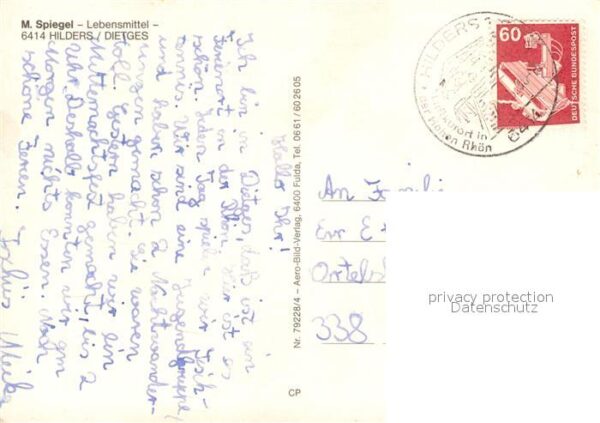 M. Spiegel – Lebensmittel –
6414 HILDERS / DIETGES
Hallo Ihr!
Ich bin in Dietges, daß ist ein
Ferienort in der Rhön. Hier ist es
schön. Jeden Tag spielen wir Tisch-
tennis. Wir sind eine Jugendgruppe,
und haben schon 2 Nachtwander-
ungen gemacht. Sie waren
toll. Gestern haben wir ein
Mitternachtsfest gemacht, bis 2
Uhr. Deshalb konnten wir am
Morgen nichts Essen. Noch
schöne Ferien.
Tschüs Meike
Nr. 79228/4 – Aero-Bild-Verlag, 6400 Fulda, Tel. 0661/602605
CP
HILDERS 1
in
der Hohen Rhön
64
60
DEUTSCHE BUNDESPOST
An Famili
Ortels
338
privacy protection
Datenschutz